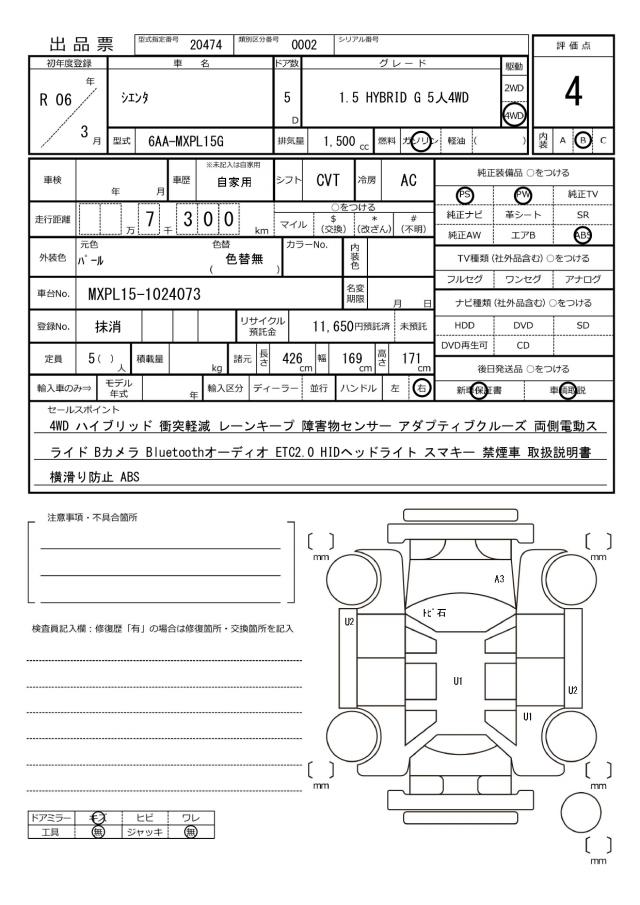 出品票 型式指定番号 20474 類別区分番号 0002 シリアル番号
評価点
4
内装 A B C
初年度登録 車名 ドア数 グレード 駆動
R 06 年 3 月 シエンタ 5 D 1.5 HYBRID G 5人4WD 2WD 4WD
型式 6AA-MXPL15G 排気量 1,500 cc 燃料 ガソリン 軽油 ( )
車検 年 月 車歴 ※未記入は自家用 自家用 シフト CVT 冷房 AC
純正装備品 ○をつける
PS PW 純正TV
純正ナビ 革シート SR
純正AW エアB ABS
走行距離 万 7 千 3 0 0 km
○をつける
マイル $ (交換) * (改ざん) # (不明)
外装色 元色 パール 色替 ( 色替無 ) カラーNo. 内装色
TV種類 (社外品含む) ○をつける
フルセグ ワンセグ アナログ
車台No. MXPL15-1024073 名変期限 月 日
ナビ種類 (社外品含む) ○をつける
HDD DVD SD
DVD再生可 CD
登録No. 抹消 リサイクル預託金 11,650円預託済 未預託
定員 5 ( ) 人 積載量 kg 諸元 長さ 426 cm 幅 169 cm 高さ 171 cm
後日発送品 ○をつける
新車保証書 車輌取説
輸入車のみ⇒ モデル年式 年 輸入区分 ディーラー 並行 ハンドル 左 右
セールスポイント
4WD ハイブリッド 衝突軽減 レーンキープ 障害物センサー アダプティブクルーズ 両側電動ス
ライド Bカメラ Bluetoothオーディオ ETC2.0 HIDヘッドライト スマキー 禁煙車 取扱説明書
横滑り防止 ABS
注意事項・不具合箇所
検査員記入欄：修復歴「有」の場合は修復箇所・交換箇所を記入
mm
mm
A3
トビ石
U2
U1
U2
U1
mm
mm
mm
ドアミラー キズ ヒビ ワレ
工具 無 ジャッキ 無